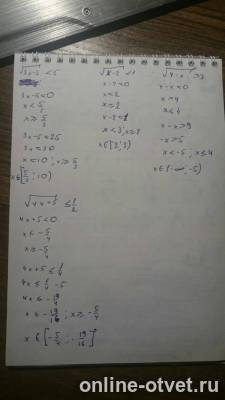 √3x-5 < 5
3x-5=0
x < 5/3
x ≥ 5/3
3x-5=25
3x=30
x=10; x ≥ 5/3
x∈[5/3; 10)
√x-2 < 1
x-2=0
x=2
x≥2
x-2=1
x<3; x≥2
x∈[2; 3)
√4-x > 3
4-x=0
x=4
x≤4
4-x>9
-x>5
x<-5; x≤4
x∈(-∞; -5)
√4x+5 ≤ 1/2
4x+5=0
x≥-5/4
4x+5≤1/4
4x≤1/4-5
4x≤-19/4
x≤-19/16; x≥-5/4
x∈[-5/4; -19/16]
online-otvet.ru